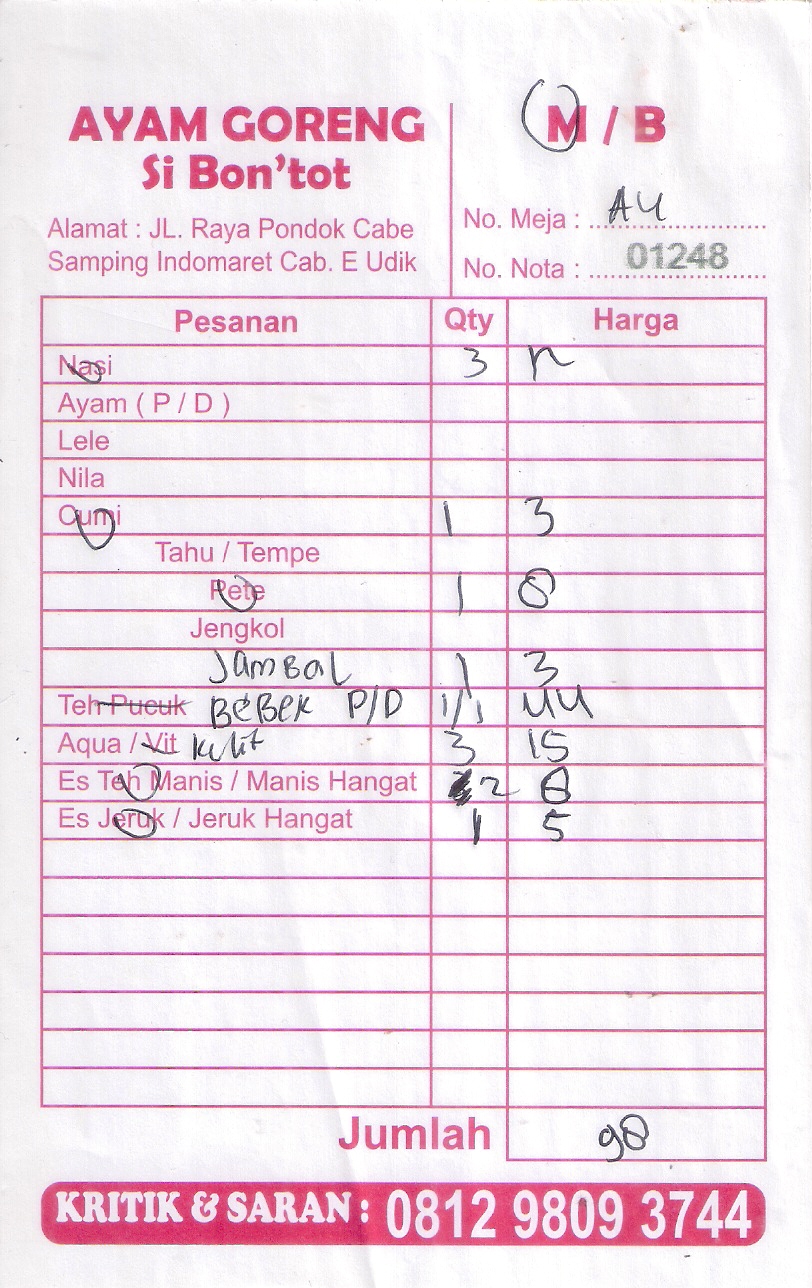 AYAM GORENG
Si Bon'tot
Alamat : JL. Raya Pondok Cabe
Samping Indomaret Cab. E Udik
M / B
No. Meja : A4
No. Nota : 01248
Pesanan Qty Harga
Nasi 3
Ayam ( P / D )
Lele
Nila
Cumi 1 3
Tahu / Tempe
Pete 1 8
Jengkol
Jambal 1 3
Teh Pucuk BEBEK P/D 1/1 44
Aqua / Vit kulit 3 15
Es Teh Manis / Manis Hangat 2 8
Es Jeruk / Jeruk Hangat 1 5
Jumlah 98
KRITIK & SARAN : 0812 9809 3744